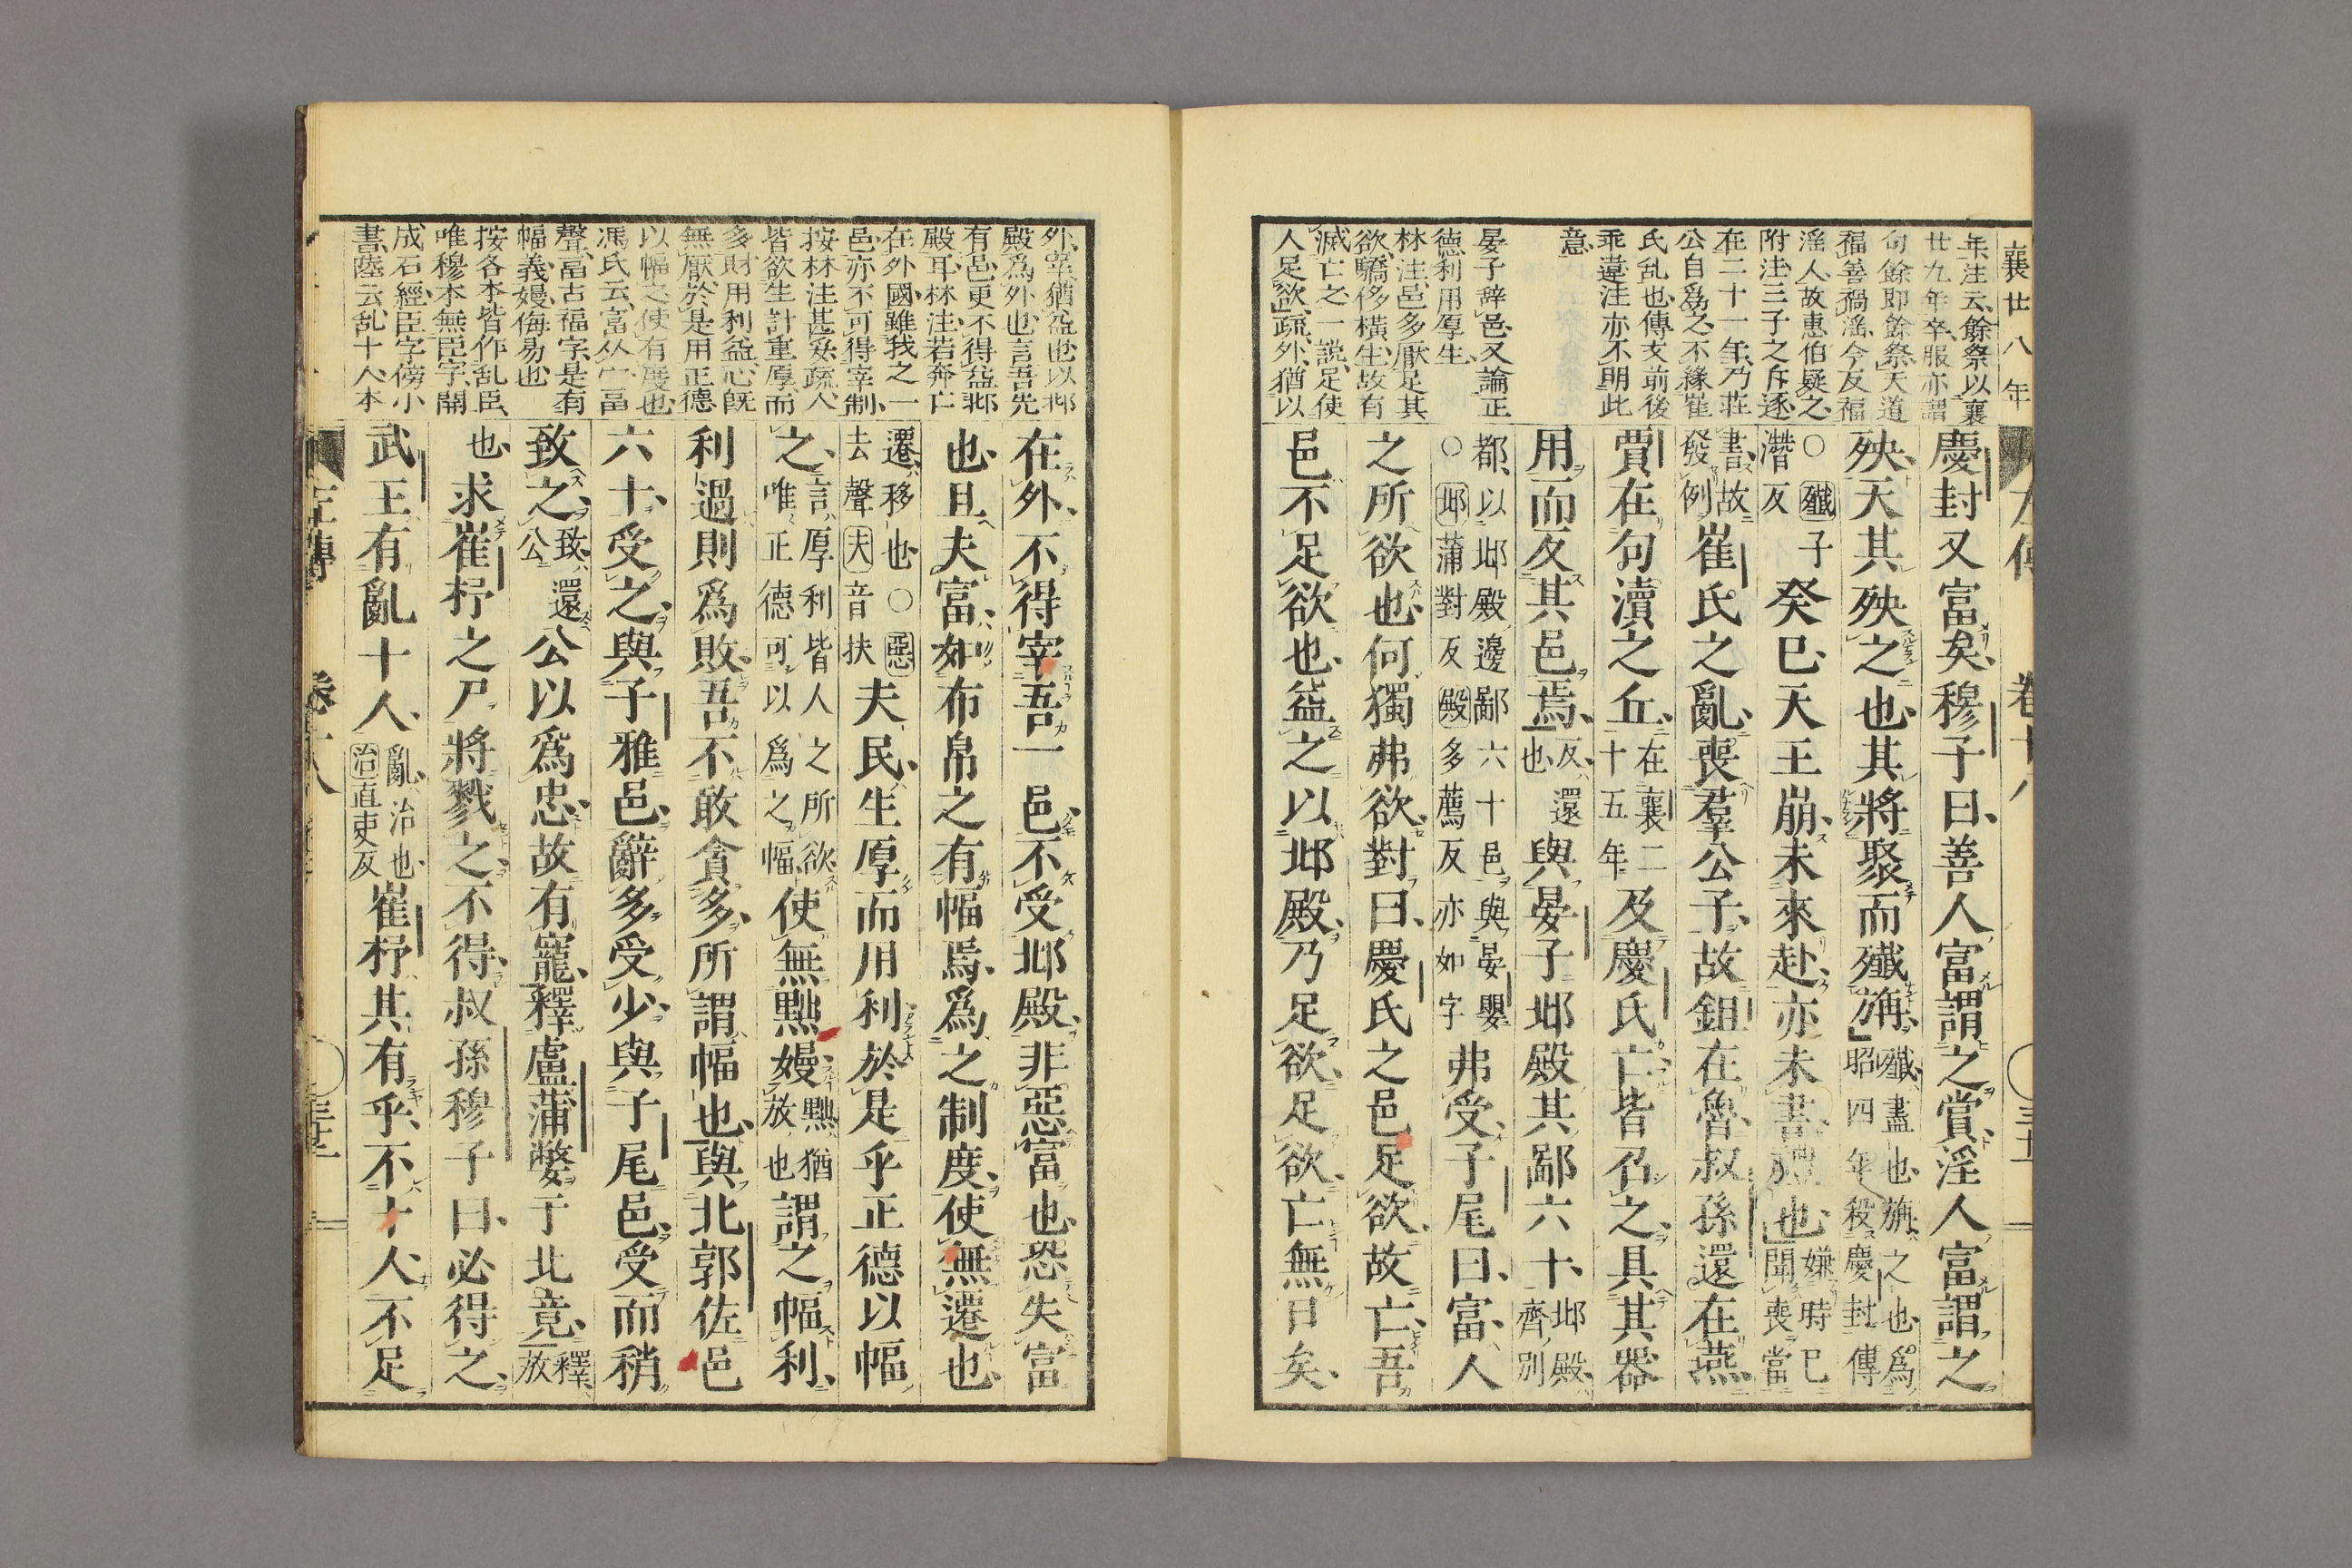 襄廿八年
年注云餘祭以襄
廿九年卒服亦謂
句餘即餘祭天道
福善禍淫今反福
淫人故惠伯疑之
附注三子之斥逐
在二十一年乃莊
公自爲之不緣崔
氏乱也傳文前後
乖違注亦不明此
意
晏子辞邑又論正
德利用厚生
林注邑多厭足其
欲驕侈橫生故有
滅亡之一說足使
人足欲疏外猶以
慶封又富矣穆子曰善人富謂之賞淫人富謂之
殃天其殃之也其將聚而殲旃殲盡也旃之也爲
昭四年殺慶封傳
○殲子
潛反癸巳天王崩未來赴亦未書禮也嫌時已
聞喪當
書故
發例崔氏之亂喪羣公子故鉏在魯叔孫還在燕
賈在句瀆之丘在襄二
十五年及慶氏亡皆召之具其器
用而反其邑焉反還
也與晏子邶殿其鄙六十邶殿齊別
都以邶殿邊鄙六十邑與晏嬰
○邶蒲對反殿多薦反亦如字弗受子尾曰富人
之所欲也何獨弗欲對曰慶氏之邑足欲故亡吾
邑不足欲也益之以邶殿乃足欲足欲亡無日矣
外宰猶益也以邶
殿爲外也言吾先
有邑更不得益邶
殿耳林注若奔亡
在外國雖我之一
邑亦不可得宰制
按林注甚妥疏人
皆欲生計重厚而
多財用利益心既
無厭於是用正德
以幅之使有度也
馮氏云富从宀畐
聲畐古福字是有
幅義嫚侮易也
按各本皆作乱臣
唯穆本無臣字開
成石經臣字傍小
書陸云乱十人本
在外不得宰吾一邑不受邶殿非惡富也恐失富
也且夫富如布帛之有幅焉爲之制度使無遷也
遷移也○惡
去聲夫音扶夫民生厚而用利於是乎正德以幅
之言厚利皆人之所欲
唯正德可以爲之幅使無黜嫚黜猶
放也謂之幅利
利過則爲敗吾不敢貪多所謂幅也與北郭佐邑
六十受之與子雅邑辭多受少與子尾邑受而稍
致之致還
公公以爲忠故有寵釋盧蒲嫳于北竟釋
放
也求崔杼之尸將戮之不得叔孫穆子曰必得之
武王有亂十人亂治也
治直吏反崔杼其有乎不十人不足